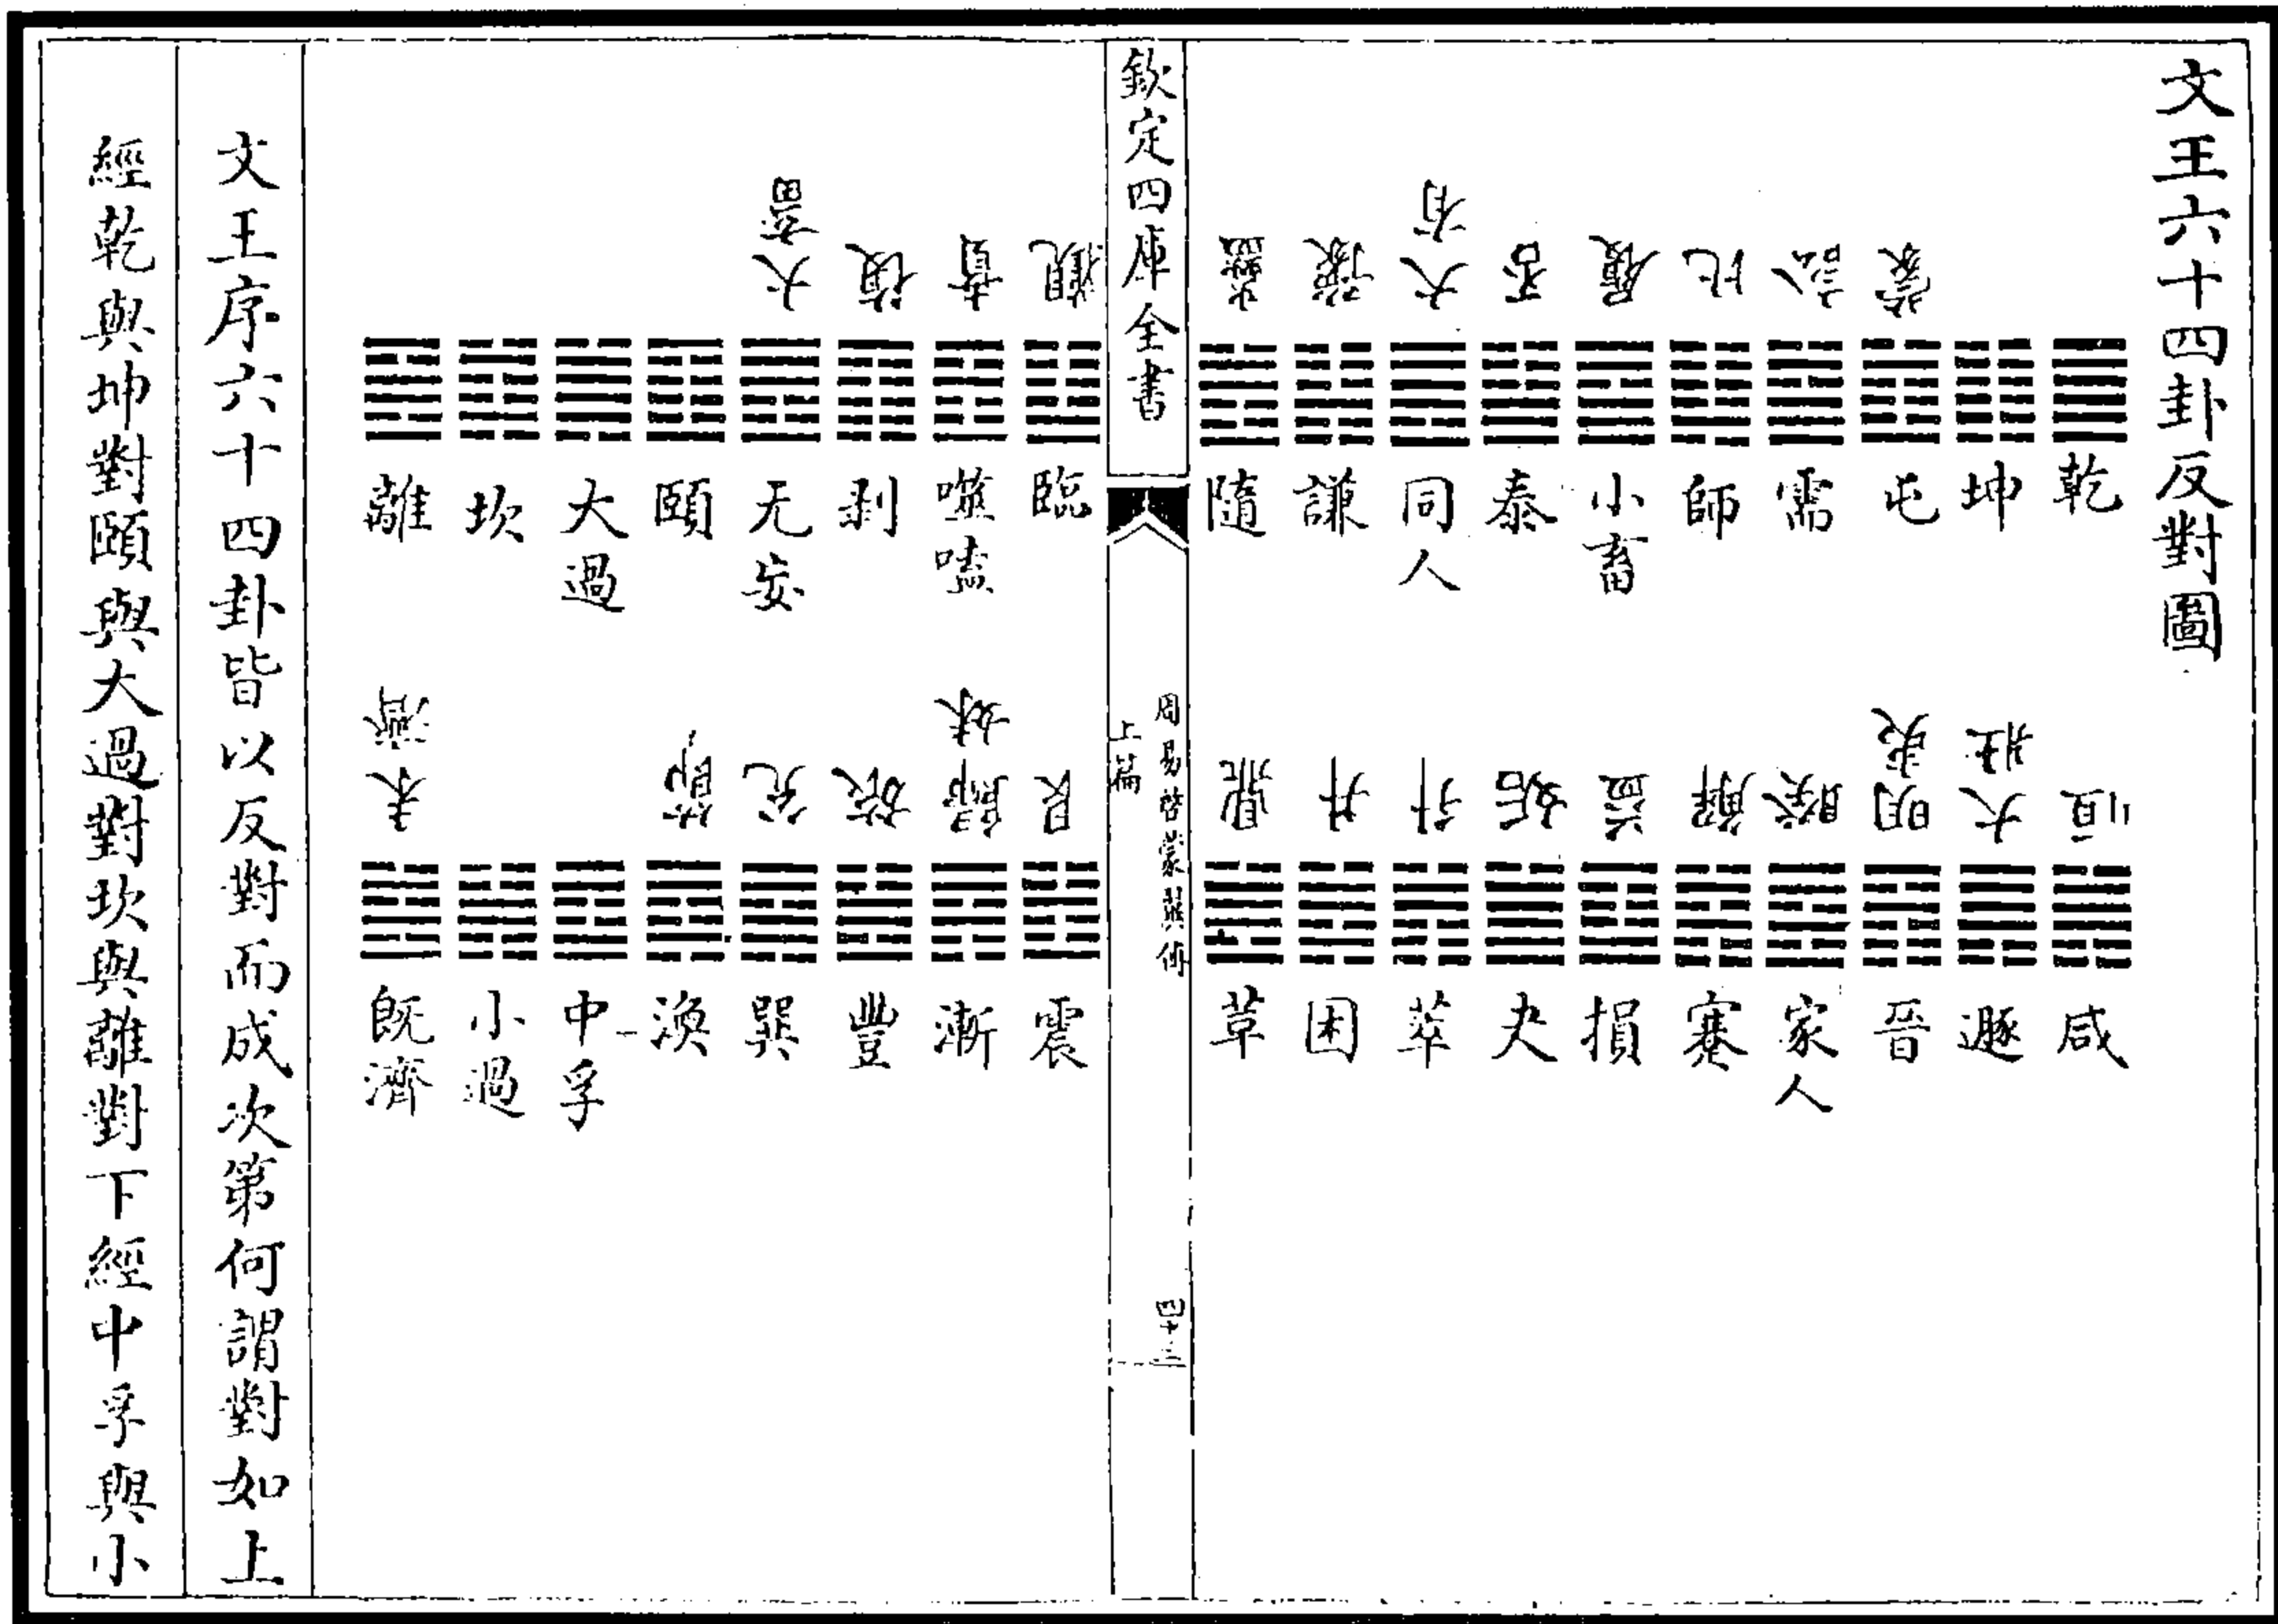 文王六十四卦反對圖
乾
坤
屯
蒙
需
訟
師
比
小畜
履
泰
否
同人
大有
謙
豫
隨
蠱
咸
恒
遯
大壯
晉
明夷
家人
睽
蹇
解
損
益
夬
姤
萃
升
困
井
革
鼎
欽定四庫全書
周易啓蒙翼傳
上篇
四十三
臨
觀
噬嗑
賁
剥
復
无妄
大畜
頤
大過
坎
離
震
艮
漸
歸妹
豐
旅
巽
兊
渙
節
中孚
小過
既濟
未濟
文王序六十四卦皆以反對而成次第何謂對如上
經乾與坤對頤與大過對坎與離對下經中孚與小